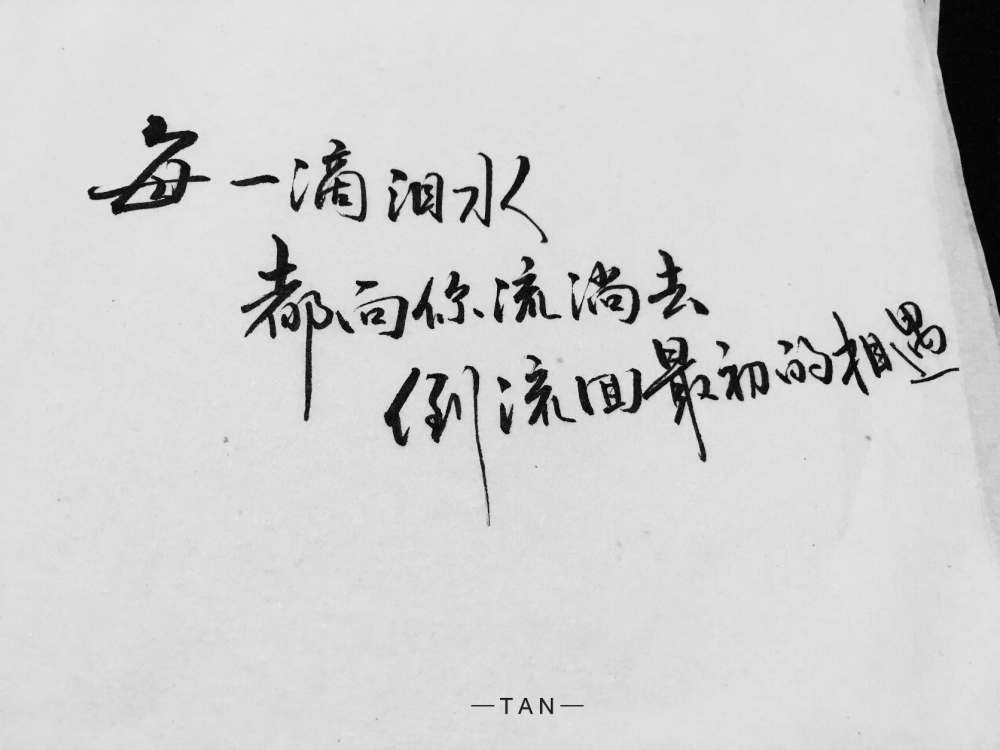 每一滴泪水
都向你流淌去
倒流回最初的相遇
—TAN—